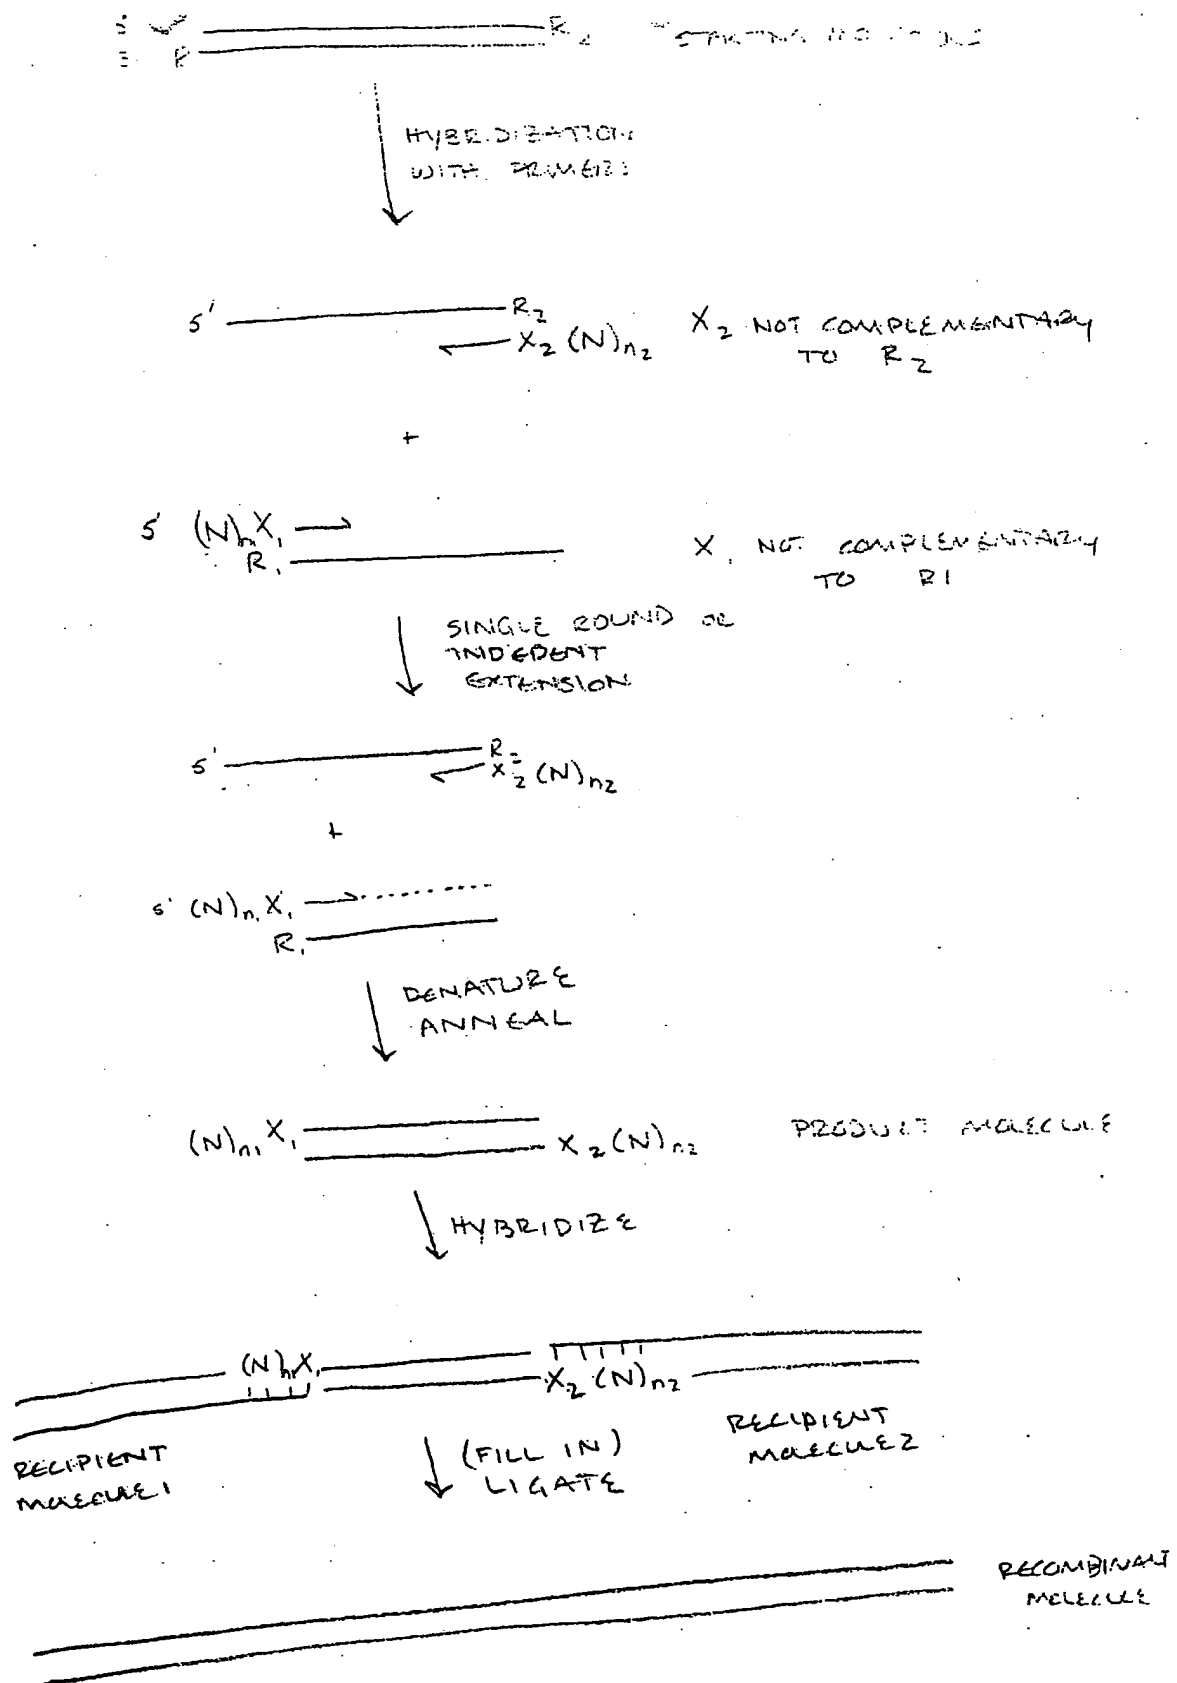 R₂
STARTING
HYBRIDIZATION
WITH PRIMERS
5' R₂
X₂ (N)n₂
X₂ NOT COMPLEMENTARY
TO R₂
+
5' (N)n₁ X₁
R₁
X₁ NOT COMPLEMENTARY
TO R1
SINGLE ROUND OR
INDEPENT
EXTENSION
5' R₂
X₂ (N)n₂
+
5' (N)n₁ X₁
R₁
DENATURE
ANNEAL
(N)n₁ X₁
X₂ (N)n₂
PRODUCT MOLECULE
HYBRIDIZE
(N)n₁ X₁
X₂ (N)n₂
RECIPIENT
MOLECULE 1
RECIPIENT
MOLECULE 2
(FILL IN)
LIGATE
RECOMBINANT
MOLECULE